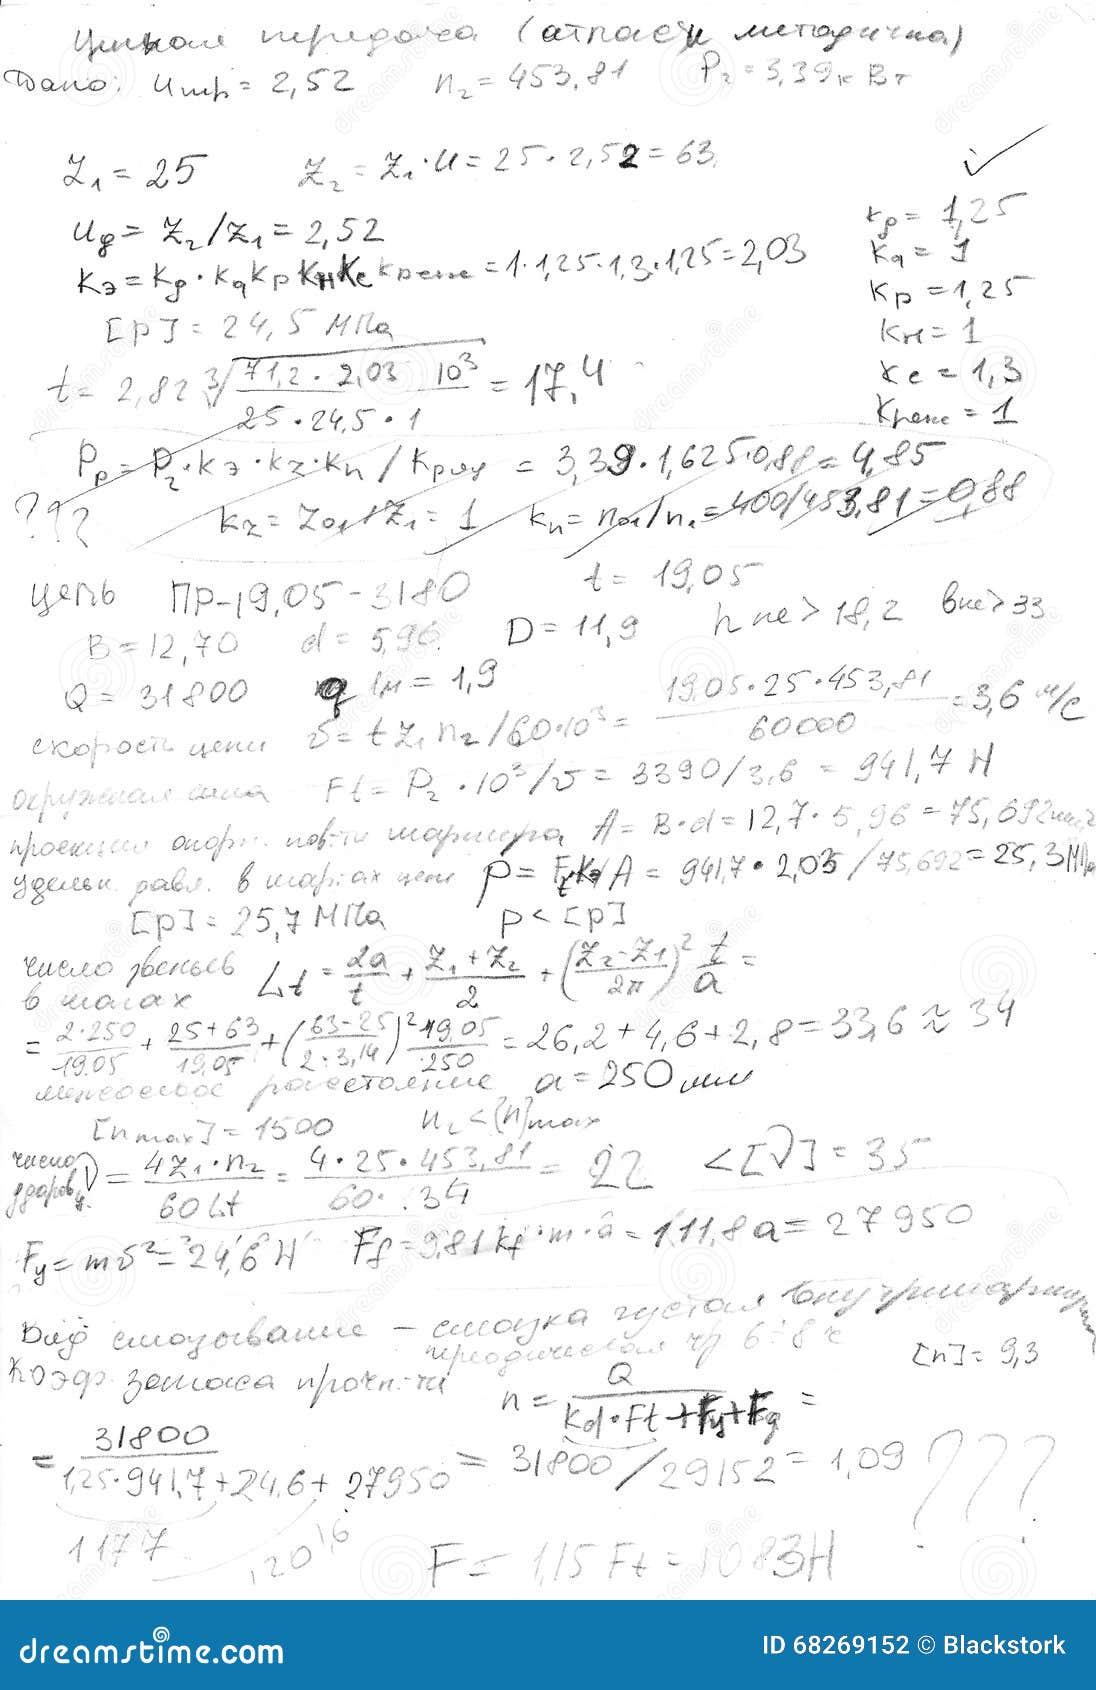 Цепная передача (атлас и методичка)
Дано: Uцр = 2,52 n₂ = 453,81 P₂ = 3,39 кВт
Z₁ = 25 Z₂ = Z₁·U = 25·2,52 = 63
Uд = Z₂/Z₁ = 2,52
kд = 1,25
kэ = kд·kа kр kн kс kреж = 1·1,25·1,3·1,25 = 2,03
kа = 1
kр = 1,25
[p] = 24,5 МПа
kн = 1
t = 2,82 ∛(71,2·2,03 10³ / 25·24,5·1) = 17,4
kс = 1,3
kреж = 1
Pр = P₂·kэ·kz·kn / kряд = 3,39·1,625·0,88 = 4,85
??? kz = Z01/Z₁ = 1 kn = n01/n₁ = 400/453,81 = 0,88
цепь ПР-19,05-3180 t = 19,05
B = 12,70 d = 5,96 D = 11,9 h не > 18,2 b не > 33
Q = 31800 q 1м = 1,9
скорость цепи v = t Z₁ n₂/60·10³ = 19,05·25·453,81 / 60000 = 3,6 м/с
окружная сила Ft = P₂·10³/v = 3390/3,6 = 941,7 Н
проекция опорн. пов-ти шарнира A = B·d = 12,7·5,96 = 75,692 мм²
удельн. давл. в шарнах цепи p = Ft kэ/A = 941,7·2,03/75,692 = 25,3 МПа
[p] = 25,7 МПа p < [p]
число звеньев в шагах Lt = 2a/t + (Z₁+Z₂)/2 + ((Z₂-Z₁)/2π)² t/a =
= 2·250/19,05 + (25+63)/19,05 + ((63-25)/2·3,14)² 19,05/250 = 26,2 + 4,6 + 2,8 = 33,6 ≈ 34
межосевое расстояние a = 250 мм
[n max] = 1500 n₂ < [n]max
число ударов ц. ν = 4Z₁·n₂ / 60Lt = 4·25·453,81 / 60·34 = 22 < [ν] = 35
Fу = mv² = 24,6 Н Ff = 9,81 kf·m·a = 111,8a = 27950
Вид смазывание – смазка густая внутришарнирн
периодическая чр 6÷8 ч
[n] = 9,3
Коэф. запаса прочн-ти n = Q / (kd·Ft + Fу + Fg) =
= 31800 / (1,25·941,7 + 24,6 + 27950) = 31800/29152 = 1,09 ???
1177
F = 1,15 Ft = 1083 Н
dreamstime.com
ID 68269152 © Blackstork